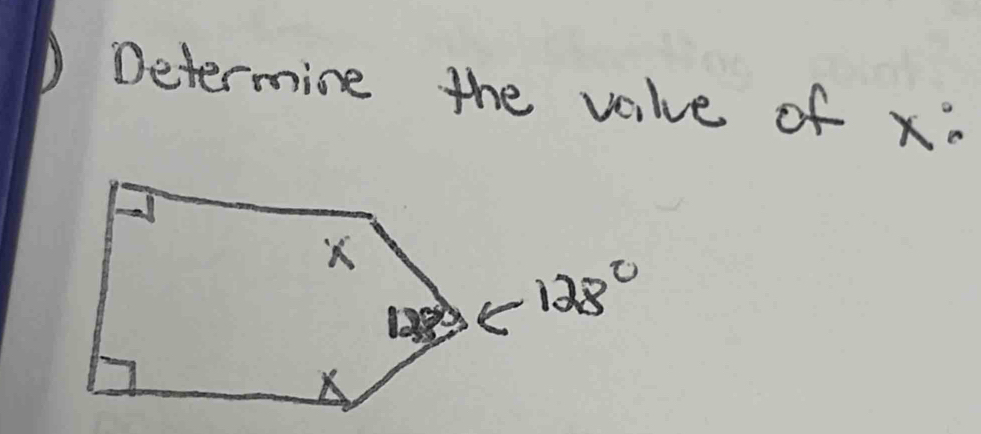 ) Determine the value of x:
x
128° ← 128°
x